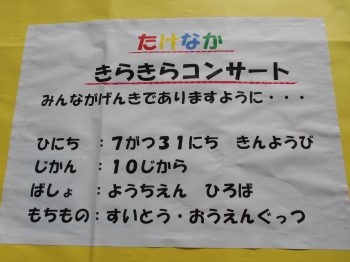 たけなか
きらきらコンサート
みんながげんきでありますように・・・
ひにち ：７がつ３１にち きんようび
じかん ：１０じから
ばしょ ：ようちえん ひろば
もちもの：すいとう・おうえんぐっつ